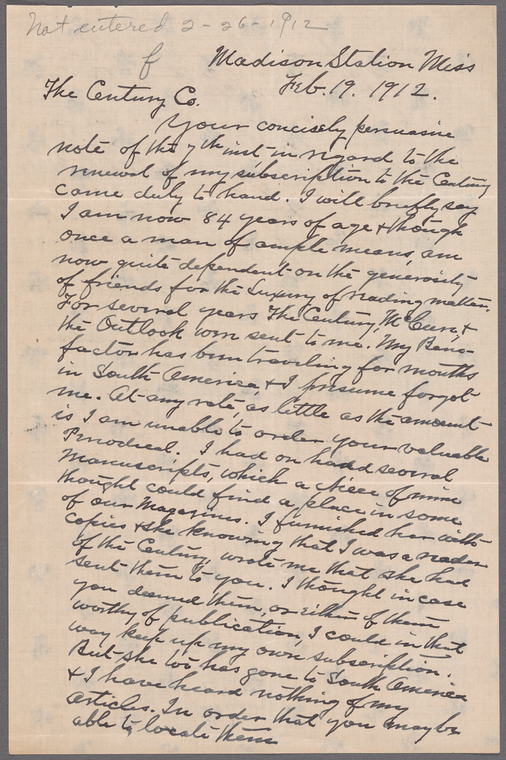 Not entered 2-26-1912
f
Madison Station Miss
Feb. 19. 1912.
The Century Co.
Your concisely persuasive
note of the 7th inst in regard to the
renewal of my subscription to the Century
came duly to hand. I will briefly say
I am now 84 years of age & though
once a man of ample means, am
now quite dependent on the generosity
of friends for the luxury of reading matter.
For several years The Century, McClure, &
the Outlook were sent to me. My Bene-
factor has been traveling for months
in South America & I presume forgot
me. At any rate, as little as the amount
is I am unable to order your valuable
Periodical. I had on hand several
Manuscripts, which a niece of mine
thought could find a place in some
of our Magazines. I furnished her with
copies & she knowing that I was a reader
of the Century, wrote me that she had
sent them to you. I thought in case
you deemed them, or either of them
worthy of publication, I could in that
way keep up my own subscription.
But she too has gone to South America
& I have heard nothing of my
articles. In order that you may be
able to locate them